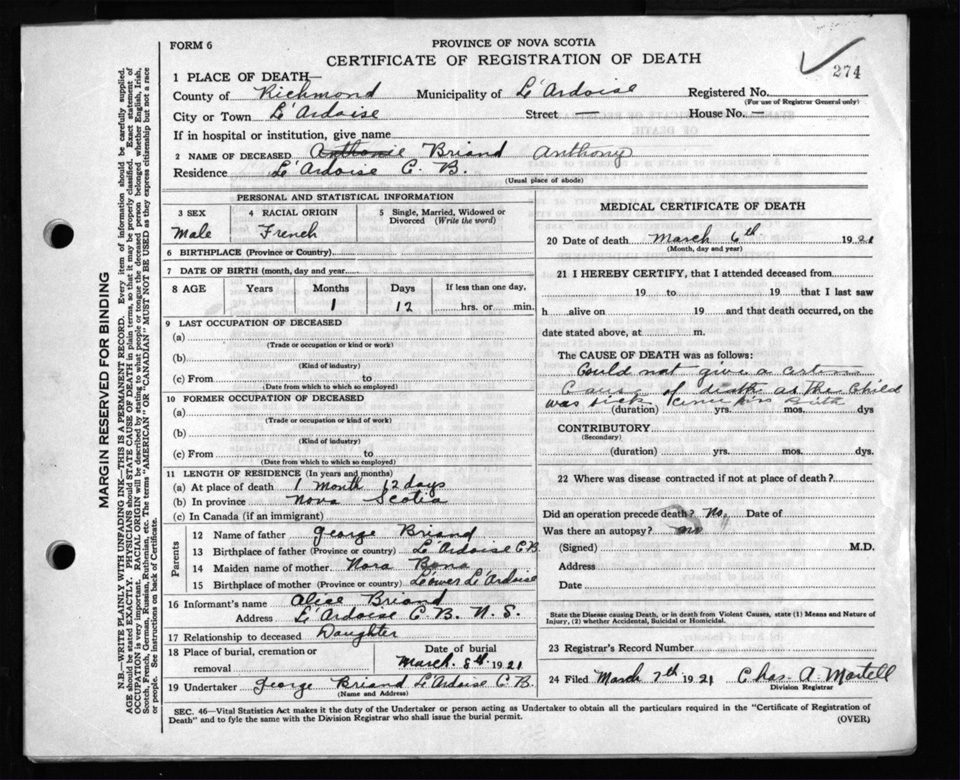 FORM 6
PROVINCE OF NOVA SCOTIA
CERTIFICATE OF REGISTRATION OF DEATH
274
1 PLACE OF DEATH—
County of Richmond Municipality of L'Ardoise Registered No.
(For use of Registrar General only)
City or Town L'Ardoise Street — House No. —
If in hospital or institution, give name
2 NAME OF DECEASED Anthonie Briand Anthony
Residence L'Ardoise C. B.
(Usual place of abode)
PERSONAL AND STATISTICAL INFORMATION
3 SEX 4 RACIAL ORIGIN 5 Single, Married, Widowed or Divorced (Write the word)
Male French
6 BIRTHPLACE (Province or Country)
7 DATE OF BIRTH (month, day and year)
8 AGE Years Months Days If less than one day,
1 12 hrs. or min.
9 LAST OCCUPATION OF DECEASED
(a)
(Trade or occupation or kind or work)
(b)
(Kind of industry)
(c) From to
(Date from which to which so employed)
10 FORMER OCCUPATION OF DECEASED
(a)
(Trade or occupation or kind of work)
(b)
(Kind of industry)
(c) From to
(Date from which to which so employed)
11 LENGTH OF RESIDENCE (In years and months)
(a) At place of death 1 month 12 days
(b) In province Nova Scotia
(c) In Canada (if an immigrant)
Parents
12 Name of father George Briand
13 Birthplace of father (Province or country) L'Ardoise C.B.
14 Maiden name of mother Nora Bona
15 Birthplace of mother (Province or country) Lower L'Ardoise
16 Informant's name Alice Briand
Address L'Ardoise C. B. N. S.
17 Relationship to deceased Daughter
18 Place of burial, cremation or removal
Date of burial
March. 8th. 1921
19 Undertaker George Briand L'Ardoise C. B.
(Name and Address)
MEDICAL CERTIFICATE OF DEATH
20 Date of death March 6th 1921
(Month, day and year)
21 I HEREBY CERTIFY, that I attended deceased from
19 to 19 that I last saw
h alive on 19 and that death occurred, on the
date stated above, at m.
The CAUSE OF DEATH was as follows:
Could not give a
Cause of death as the child
was sick birth
(duration) yrs. mos. dys
CONTRIBUTORY
(Secondary)
(duration) yrs. mos. dys.
22 Where was disease contracted if not at place of death?
Did an operation precede death? No. Date of
Was there an autopsy? no
(Signed) M.D.
Address
Date
State the Disease causing Death, or in death from Violent Causes, state (1) Means and Nature of
Injury, (2) whether Accidental, Suicidal or Homicidal.
23 Registrar's Record Number
24 Filed March 7th 1921 Chas. A. Martell
Division Registrar
SEC. 46—Vital Statistics Act makes it the duty of the Undertaker or person acting as Undertaker to obtain all the particulars required in the "Certificate of Registration of
Death" and to fyle the same with the Division Registrar who shall issue the burial permit.
(OVER)
MARGIN RESERVED FOR BINDING
N.B.—WRITE PLAINLY WITH UNFADING INK—THIS IS A PERMANENT RECORD. Every item of information should be carefully supplied.
AGE should be stated EXACTLY. PHYSICIANS should STATE CAUSE OF DEATH in plain terms, so that it may be properly classified. Exact statement of
OCCUPATION is very important. RACIAL ORIGIN will be described by stating to what people or tongue the deceased person belonged whether English, Irish,
Scotch, French, German, Russian, Ruthenian, etc. The terms "AMERICAN" OR "CANADIAN" MUST NOT BE USED as they express citizenship but not a race
or people. See instructions on back of Certificate.